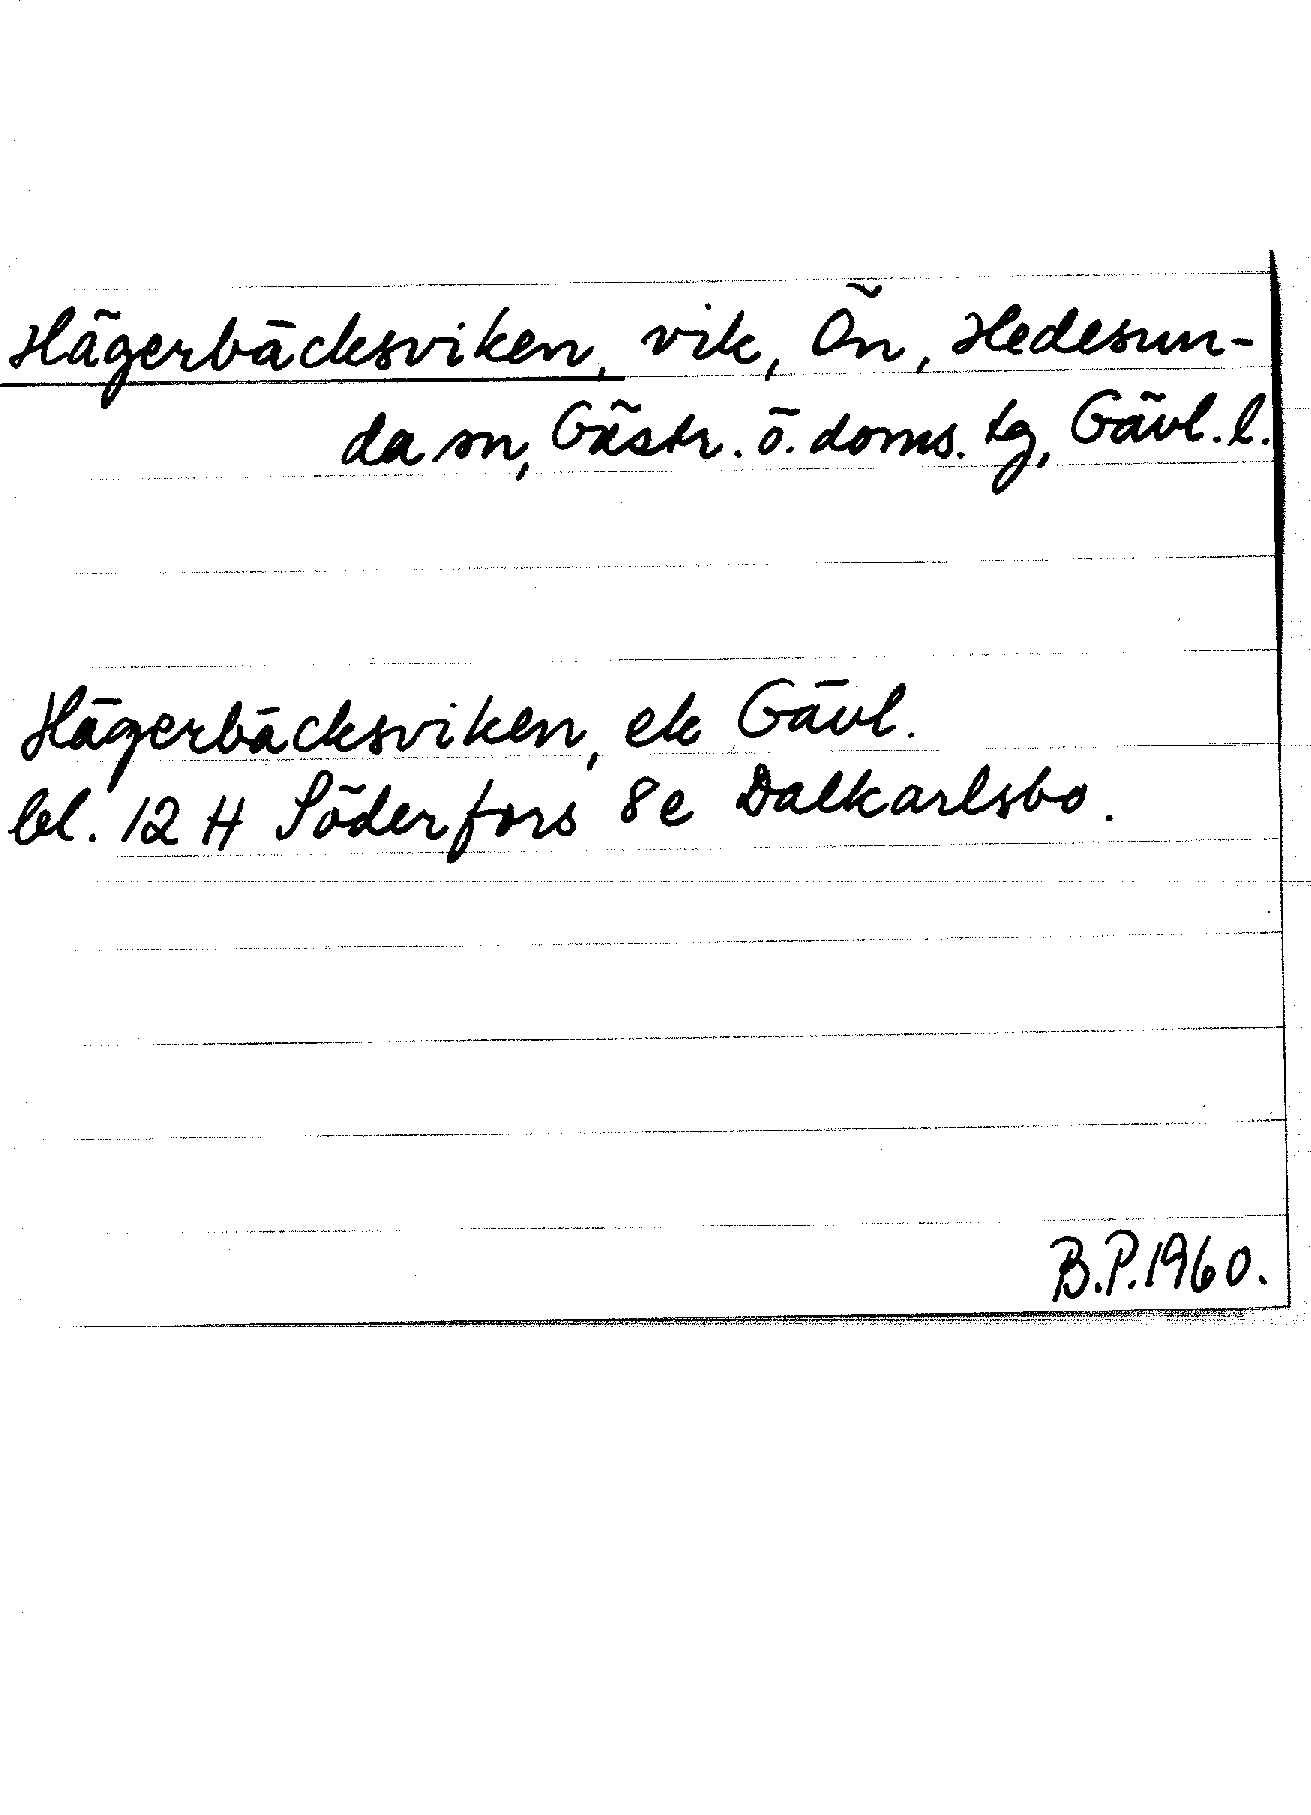 Hägerbäcksviken, vik, Ön, Hedesun-
da sn, Gästr. ö. doms. tg, Gävl. l.
Hägerbäcksviken, ek Gävl.
bl. 12 H Söderfors 8e Dalkarlsbo.
B.P. 1960.